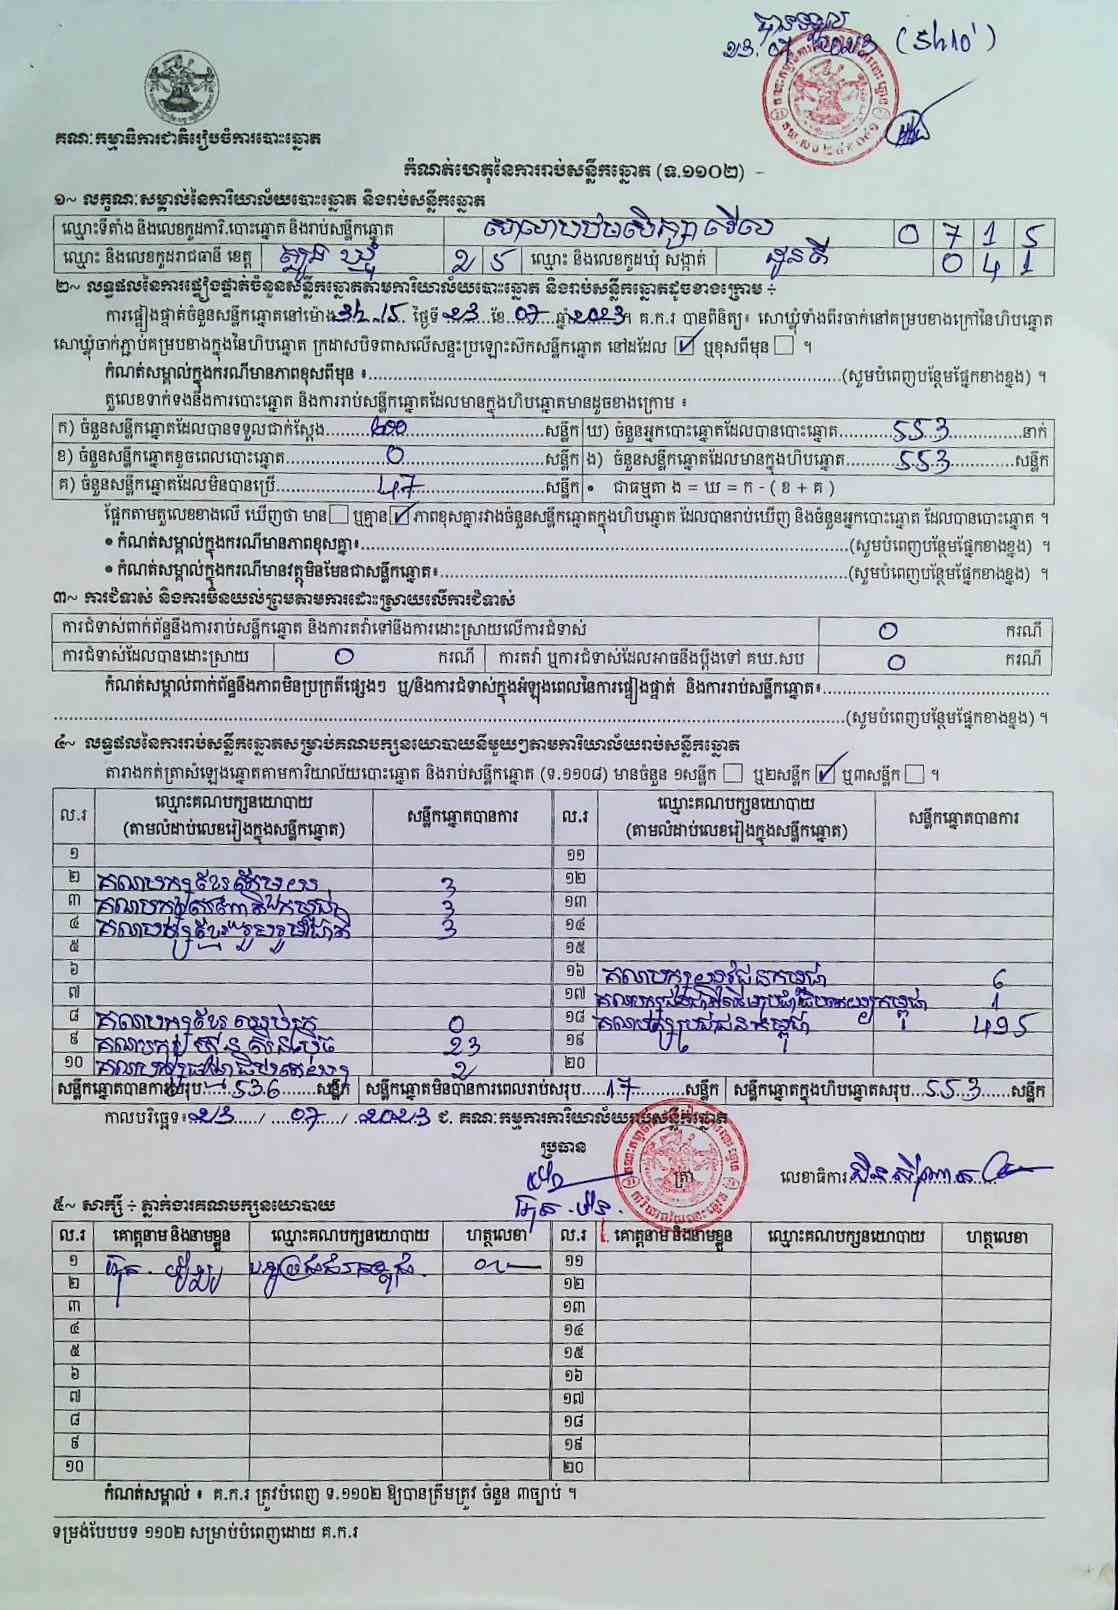 បានទទួល
23.07.2023 (5h10')
គណៈកម្មាធិការជាតិរៀបចំការបោះឆ្នោត
កំណត់ហេតុនៃការរាប់សន្លឹកឆ្នោត (ទ.១១០២)
១~ លក្ខណៈសម្គាល់នៃការិយាល័យបោះឆ្នោត និងរាប់សន្លឹកឆ្នោត
ឈ្មោះទីតាំង និងលេខកូដការិ.បោះឆ្នោត និងរាប់សន្លឹកឆ្នោត សាលាបឋមសិក្សា វើល 0 7 1 5
ឈ្មោះ និងលេខកូដរាជធានី ខេត្ត ត្បូងឃ្មុំ 2 5 ឈ្មោះ និងលេខកូដឃុំ សង្កាត់ ដូនតី 0 4 1
២~ លទ្ធផលនៃការផ្ទៀងផ្ទាត់ចំនួនសន្លឹកឆ្នោតតាមការិយាល័យបោះឆ្នោត និងរាប់សន្លឹកឆ្នោតដូចខាងក្រោម ÷
ការផ្ទៀងផ្ទាត់ចំនួនសន្លឹកឆ្នោតនៅម៉ោង 3h 15 ថ្ងៃទី 23 ខែ 07 ឆ្នាំ 2023។ គ.ក.រ បានពិនិត្យ៖ សោឃ្លុំទាំងពីរចាក់នៅគម្របខាងក្រៅនៃហិបឆ្នោត
សោឃ្លុំចាក់ភ្ជាប់គម្របខាងក្នុងនៃហិបឆ្នោត ក្រដាសបិទពាសលើសន្ទះប្រឡោះស៊កសន្លឹកឆ្នោត នៅដដែល ☑ ឬខុសពីមុន ☐ ។
កំណត់សម្គាល់ក្នុងករណីមានភាពខុសពីមុន ៖ (សូមបំពេញបន្ថែមផ្នែកខាងខ្នង) ។
តួលេខទាក់ទងនឹងការបោះឆ្នោត និងការរាប់សន្លឹកឆ្នោតដែលមានក្នុងហិបឆ្នោតមានដូចខាងក្រោម ៖
ក) ចំនួនសន្លឹកឆ្នោតដែលបានទទួលជាក់ស្ដែង 600 សន្លឹក ឃ) ចំនួនអ្នកបោះឆ្នោតដែលបានបោះឆ្នោត 553 នាក់
ខ) ចំនួនសន្លឹកឆ្នោតខូចពេលបោះឆ្នោត 0 សន្លឹក ង) ចំនួនសន្លឹកឆ្នោតដែលមានក្នុងហិបឆ្នោត 553 សន្លឹក
គ) ចំនួនសន្លឹកឆ្នោតដែលមិនបានប្រើ 47 សន្លឹក • ជាធម្មតា ង = ឃ = ក - ( ខ + គ )
ផ្អែកតាមតួលេខខាងលើ ឃើញថា មាន ☐ ឬគ្មាន ☑ ភាពខុសគ្នារវាងចំនួនសន្លឹកឆ្នោតក្នុងហិបឆ្នោត ដែលបានរាប់ឃើញ និងចំនួនអ្នកបោះឆ្នោត ដែលបានបោះឆ្នោត ។
• កំណត់សម្គាល់ក្នុងករណីមានភាពខុសគ្នា៖ (សូមបំពេញបន្ថែមផ្នែកខាងខ្នង) ។
• កំណត់សម្គាល់ក្នុងករណីមានវត្ថុមិនមែនជាសន្លឹកឆ្នោត៖ (សូមបំពេញបន្ថែមផ្នែកខាងខ្នង) ។
៣~ ការជំទាស់ និងការមិនយល់ព្រមតាមការដោះស្រាយលើការជំទាស់
ការជំទាស់ពាក់ព័ន្ធនឹងការរាប់សន្លឹកឆ្នោត និងការតវ៉ាទៅនឹងការដោះស្រាយលើការជំទាស់ 0 ករណី
ការជំទាស់ដែលបានដោះស្រាយ 0 ករណី ការតវ៉ា ឬការជំទាស់ដែលអាចនឹងប្ដឹងទៅ គឃ.សប 0 ករណី
កំណត់សម្គាល់ពាក់ព័ន្ធនឹងភាពមិនប្រក្រតីផ្សេងៗ ឬ/និងការជំទាស់ក្នុងអំឡុងពេលនៃការផ្ទៀងផ្ទាត់ និងការរាប់សន្លឹកឆ្នោត៖
(សូមបំពេញបន្ថែមផ្នែកខាងខ្នង) ។
៤~ លទ្ធផលនៃការរាប់សន្លឹកឆ្នោតសម្រាប់គណបក្សនយោបាយនីមួយៗតាមការិយាល័យរាប់សន្លឹកឆ្នោត
តារាងកត់ត្រាសំឡេងឆ្នោតតាមការិយាល័យបោះឆ្នោត និងរាប់សន្លឹកឆ្នោត (ទ.១១០៨) មានចំនួន ១សន្លឹក ☐ ឬ២សន្លឹក ☑ ឬ៣សន្លឹក ☐ ។
ល.រ ឈ្មោះគណបក្សនយោបាយ (តាមលំដាប់លេខរៀងក្នុងសន្លឹកឆ្នោត) សន្លឹកឆ្នោតបានការ ល.រ ឈ្មោះគណបក្សនយោបាយ (តាមលំដាប់លេខរៀងក្នុងសន្លឹកឆ្នោត) សន្លឹកឆ្នោតបានការ
១ ១១
២ គណបក្សខ្មែរតែមួយ 3 ១២
៣ គណបក្ស 3 ១៣
៤ គណបក្សខ្មែររួបរួមជាតិ 3 ១៤
៥ ១៥
៦ ១៦ គណបក្សយុវជនកម្ពុជា 6
៧ ១៧ គណបក្ស កម្ពុជា 1
៨ គណបក្សខ្មែរឈប់ក្រ 0 ១៨ គណបក្សប្រជាជនកម្ពុជា 495
៩ គណបក្សហ៊្វុនស៊ិនប៉ិច 23 ១៩
១០ គណបក្ស 2 ២០
សន្លឹកឆ្នោតបានការសរុប 536 សន្លឹក សន្លឹកឆ្នោតមិនបានការពេលរាប់សរុប 17 សន្លឹក សន្លឹកឆ្នោតក្នុងហិបឆ្នោតសរុប 553 សន្លឹក
កាលបរិច្ឆេទ៖ 23 / 07 / 2023 ជ. គណៈកម្មការការិយាល័យរាប់សន្លឹកឆ្នោត
ប្រធាន
ត្រា
លេខាធិការ
៥~ សាក្សី ÷ ភ្នាក់ងារគណបក្សនយោបាយ
ល.រ គោត្តនាម និងនាមខ្លួន ឈ្មោះគណបក្សនយោបាយ ហត្ថលេខា ល.រ គោត្តនាម និងនាមខ្លួន ឈ្មោះគណបក្សនយោបាយ ហត្ថលេខា
១ បក្សប្រជាជនកម្ពុជា ១១
២ ១២
៣ ១៣
៤ ១៤
៥ ១៥
៦ ១៦
៧ ១៧
៨ ១៨
៩ ១៩
១០ ២០
កំណត់សម្គាល់ ៖ គ.ក.រ ត្រូវបំពេញ ទ.១១០២ ឱ្យបានត្រឹមត្រូវ ចំនួន ៣ច្បាប់ ។
ទម្រង់បែបបទ ១១០២ សម្រាប់បំពេញដោយ គ.ក.រ